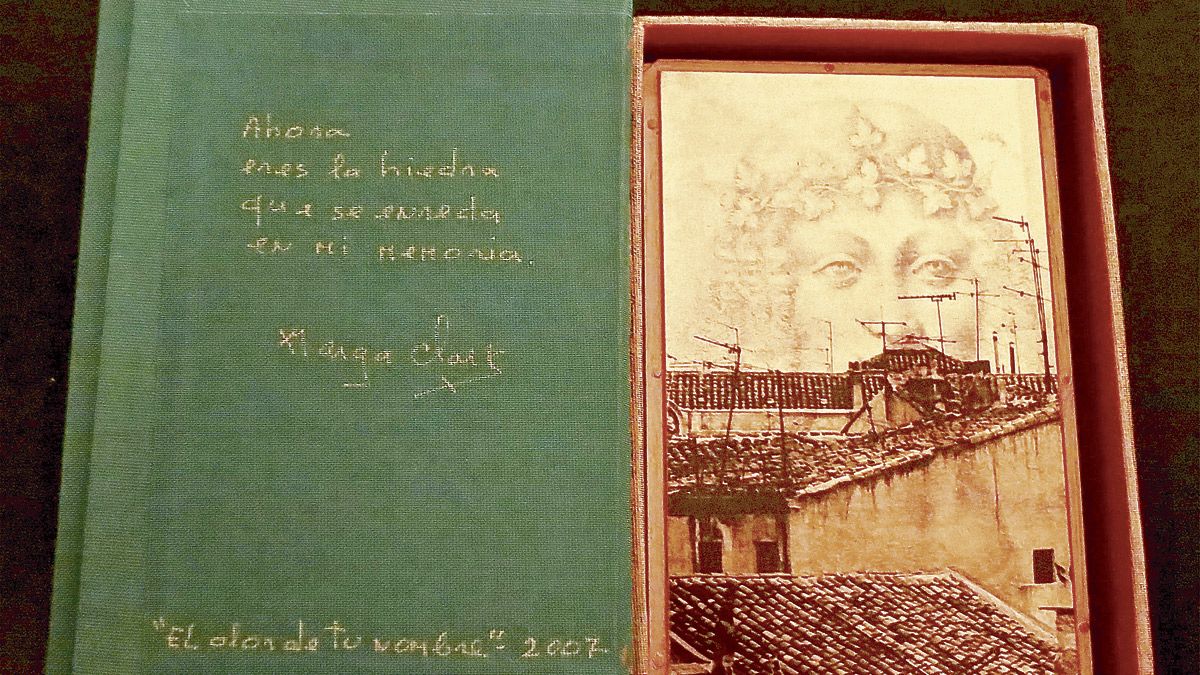 Ahora
eres la hiedra
que se enreda
en mi memoria.
Marga Clark
"El olor de tu nombre" 2007